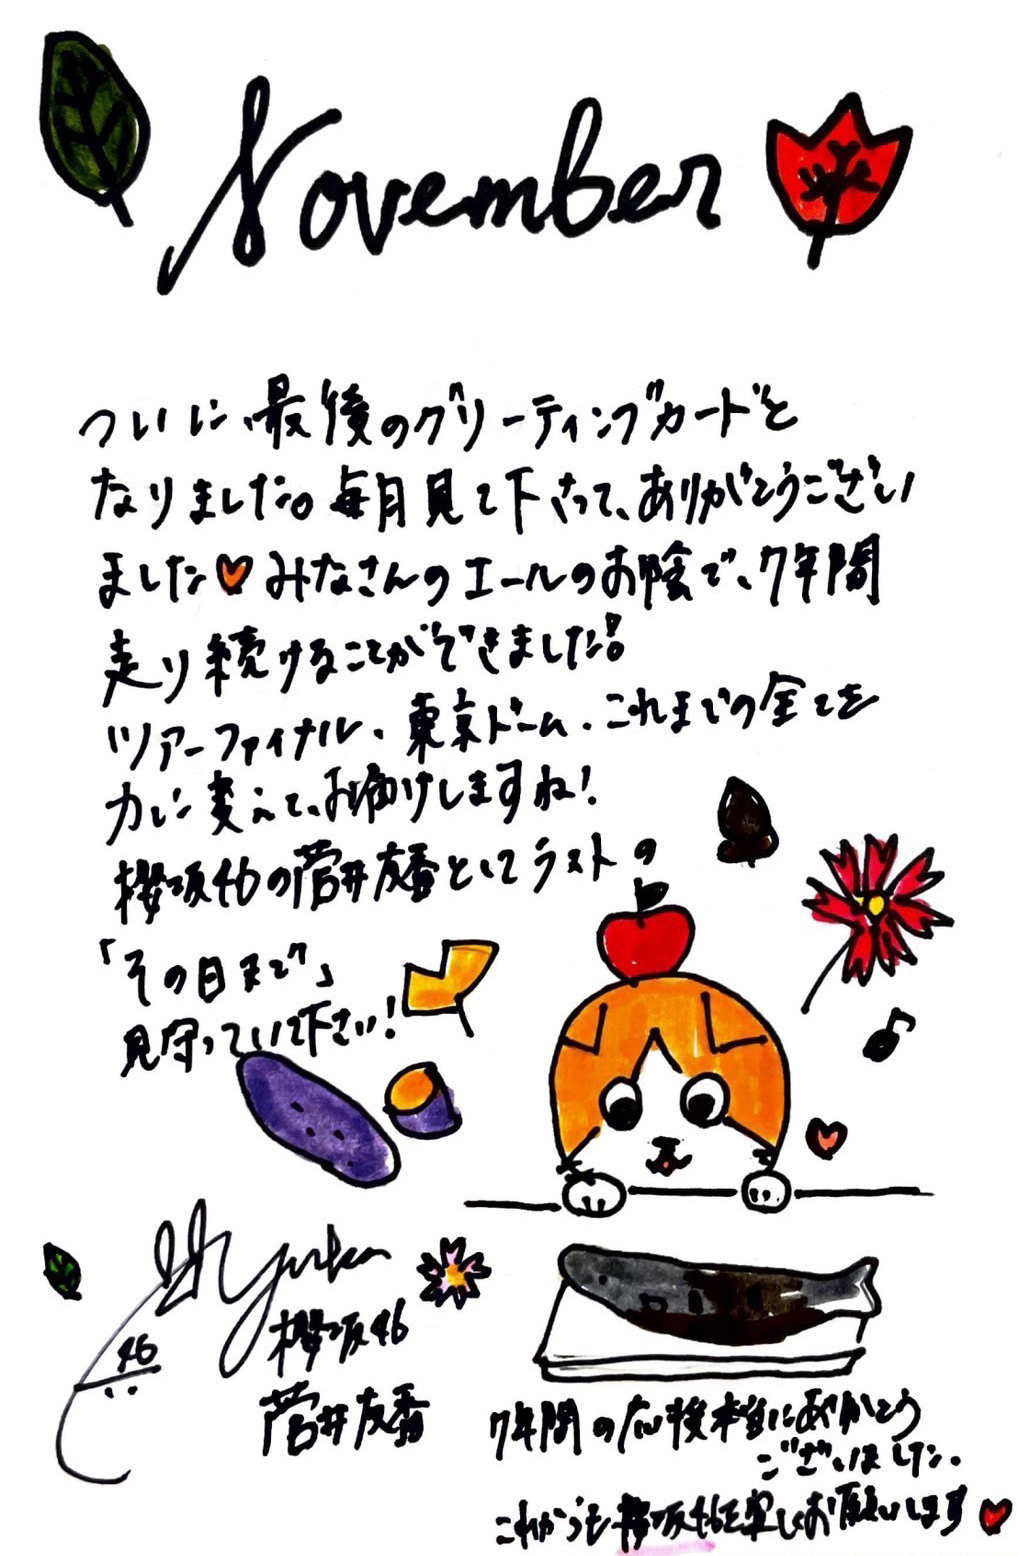 November
ついに、最後のグリーティングカードと
なりました。毎月見て下さって、ありがとうござい
ました♥みなさんのエールのお陰で、7年間
走り続けることができました!!
ツアーファイナル、東京ドーム、これまでの全てを
力に変えて、お届けしますね!
櫻坂46の菅井友香としてラストの
「その日まで」
見守っていて下さい!
Yuuka
46
櫻坂46
菅井友香
7年間の応援本当にありがとう
ございました。
これからも櫻坂46を宜しくお願いします♥